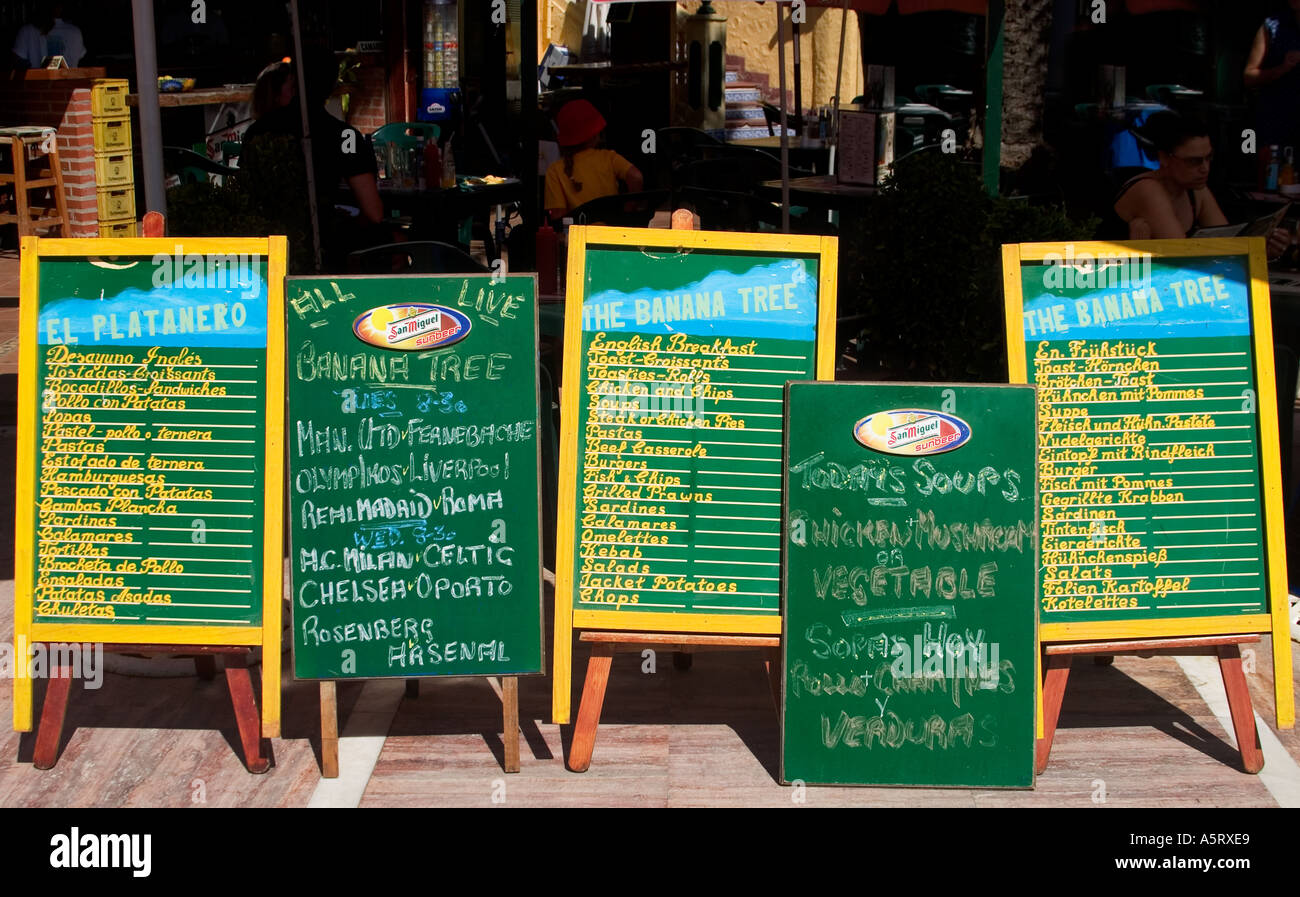 EL PLATANERO
Desayuno Inglés
Tostadas-Croissants
Bocadillos-Sandwiches
Pollo con Patatas
Sopas
Pastel-pollo o ternera
Pastas
Estofado de ternera
Hamburguesas
Pescado con Patatas
Gambas Plancha
Sardinas
Calamares
Tortillas
Brocheta de Pollo
Ensaladas
Patatas Asadas
Chuletas
ALL LIVE
San Miguel
sunbeer
BANANA TREE
TUES 8-30
MAN. UTD v FERNEBACHE
OLYMPIKOS v LIVERPOOL
REAL MADRID v ROMA
WED. 8-30
A.C. MILAN v CELTIC
CHELSEA v OPORTO
ROSENBERG
v ARSENAL
THE BANANA TREE
English Breakfast
Toast-Croissants
Toasties-Rolls
Chicken and Chips
Soups
Steak or Chicken Pies
Pastas
Beef Casserole
Burgers
Fish & Chips
Grilled Prawns
Sardines
Calamares
Omelettes
Kebab
Salads
Jacket Potatoes
Chops
San Miguel
sunbeer
TODAY'S SOUPS
CHICKEN + MUSHROOM
OR
VEGETABLE
SOPAS HOY
POLLO + CHAMPIÑES
Y
VERDURAS
THE BANANA TREE
En. Frühstück
Toast-Hörnchen
Brötchen-Toast
Hühnchen mit Pommes
Suppe
Fleisch und Hühn. Pastete
Nudelgerichte
Eintopf mit Rindfleich
Burger
Fisch mit Pommes
Gegrillte Krabben
Sardinen
Tintenfisch
Eiergerichte
Hühnchenspieß
Salats
Folien Kartoffel
Kotelettes
alamy
Image ID: A5RXE9
www.alamy.com